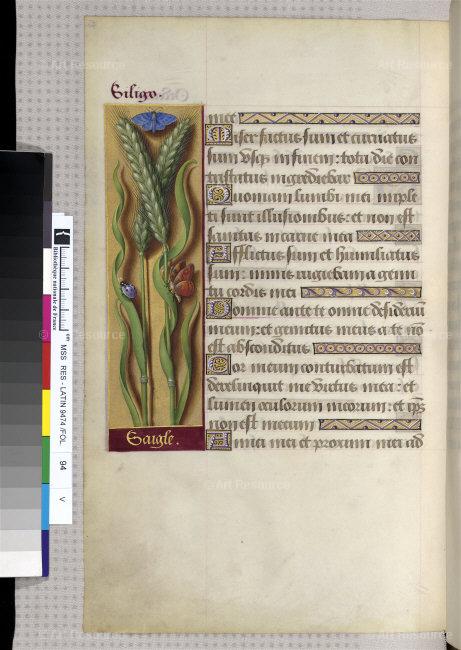 Siligo.
mee
Miser factus sum et curuatus
sum vsq; in finem: tota die con
tristatus ingrediebar
Quoniam lumbi mei imple
ti sunt illusionibus: et non est
sanitas in carne mea
Afflictus sum et humiliatus
sum: nimis rugiebam a gemi
tu cordis mei
Domine ante te omne desiderium
meum: et gemitus meus a te no
est absconditus
Cor meum conturbatum est
dereliquit me virtus mea: et
lumen oculorum meorum: et ip̄m
non est mecum
Amici mei et proximi mei ad
Saigle.
Bibliothèque nationale de France
cm
MSS RES - LATIN 9474 /FOL
94
V
© Art Resource